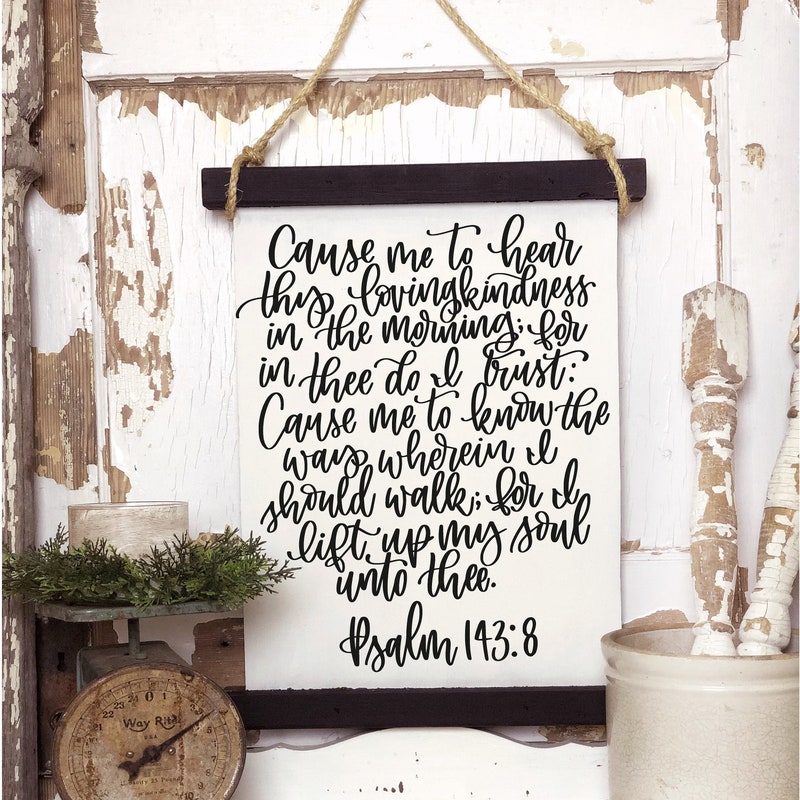 Cause me to hear
thy lovingkindness
in the morning; for
in thee do I trust:
Cause me to know the
way wherein I
should walk; for I
lift up my soul
unto thee.
Psalm 143:8
Way Rite